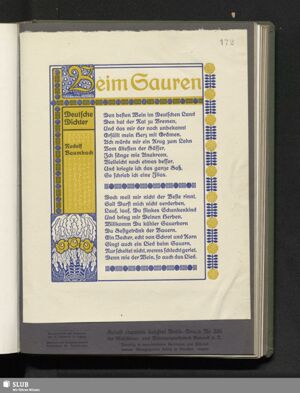 172
Beim Sauren
Deutsche
Dichter
Rudolf
Baumbach
Den besten Wein im Deutschen Land
Den hat der Rat zu Bremen,
Und das mir der noch unbekannt
Erfüllt mein Herz mit Grämen.
Ich würde mir ein Krug zum Lohn
Vom ältesten der Fässer.
Ich sänge wie Anakreon,
Vielleicht noch etwas besser.
Und kriegte ich das ganze Faß,
So schrieb ich eine Ilias.
Noch weil mir nicht der Beste rinnt,
Soll Durst mich nicht verderben.
Lauf, lauf, Du flinkes Schenkenkind
Und bring mir Deinen Herben.
Willkomm Du kühler Sauerborn
Du Beßgetränk der Bauern.
Ein Becher, echt von Schrot und Korn
Singt auch ein Lied beim Sauern,
Nur scheltet nicht, wenns schlecht geriet.
Denn wie der Wein, so auch das Lied.
SLUB
Wir führen Wissen.